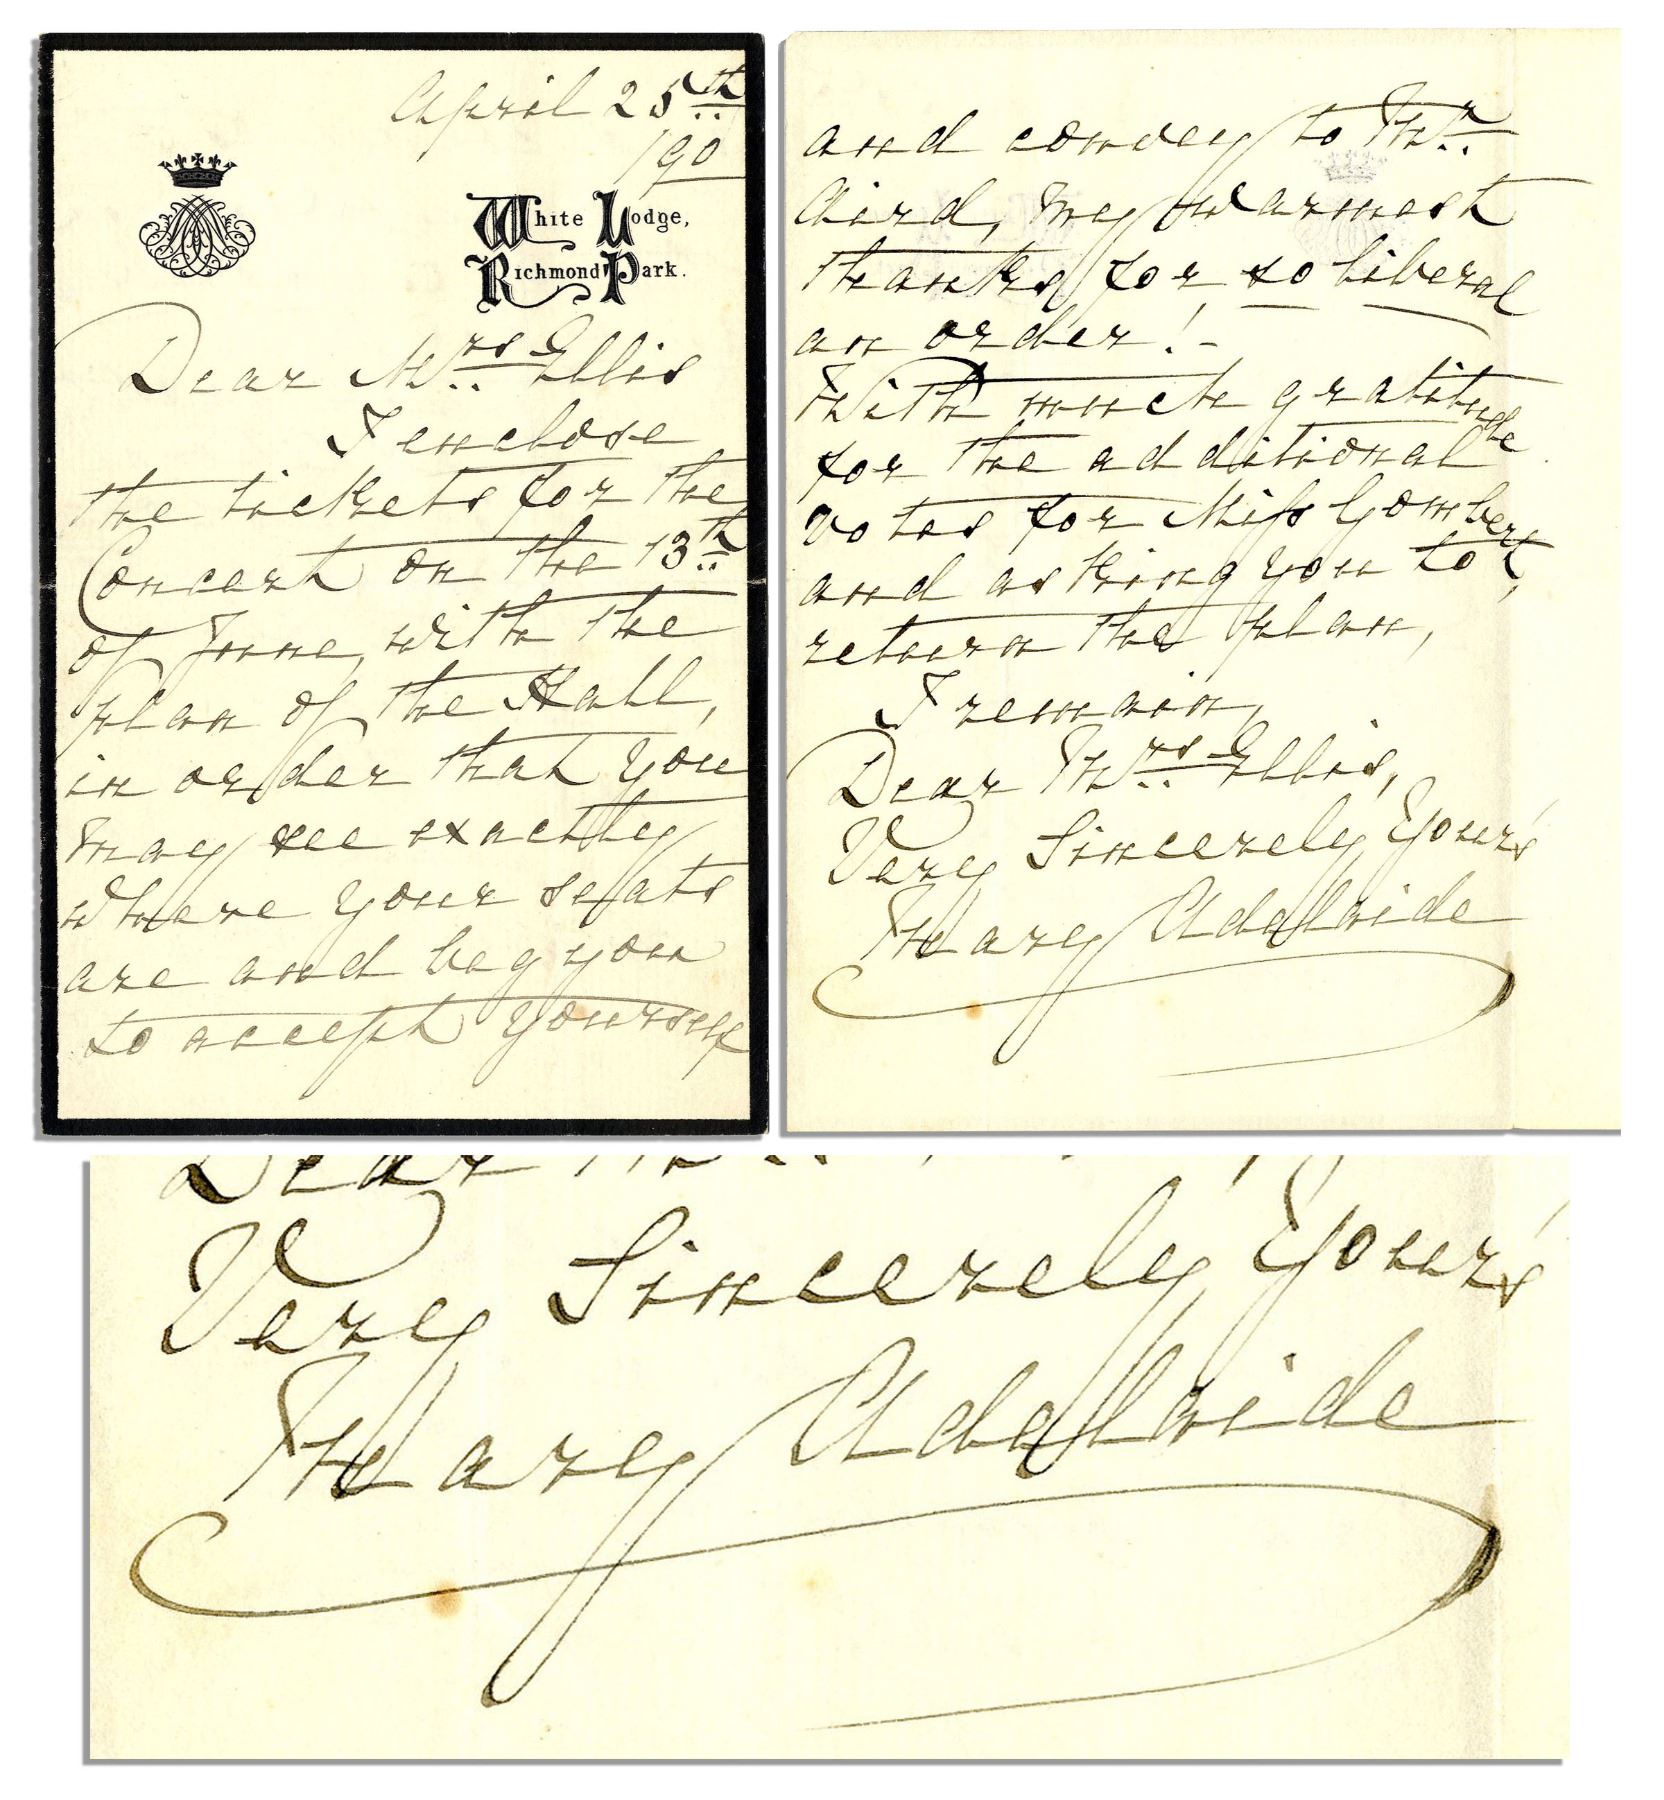 April 25th
/90
White Lodge,
Richmond Park.
Dear Mrs Ellis
I enclose
the tickets for the
Concert on the 13th
of June, with the
plan of the Hall,
in order that you
may see exactly
where your seats
are and beg you
to accept yourself
and convey to Mr
Aird, my warmest
thanks for so liberal
an order! -
With much gratitude
for the additional
votes for Miss Gombert,
and asking you to
return the plan,
I remain,
Dear Mrs Ellis,
Very Sincerely Your's
Mary Adelaide
Very Sincerely Your's
Mary Adelaide